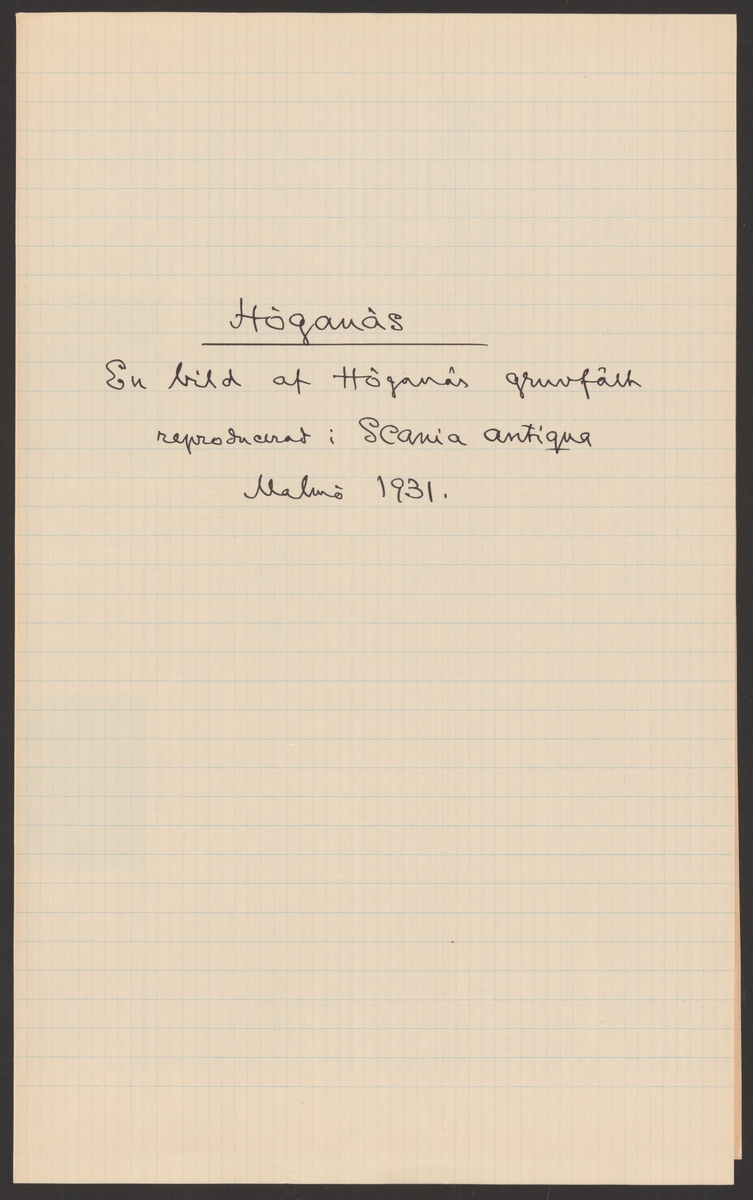 Höganäs
En bild af Höganäs gruvfält
reproducerad i Scania antiqua
Malmö 1931.